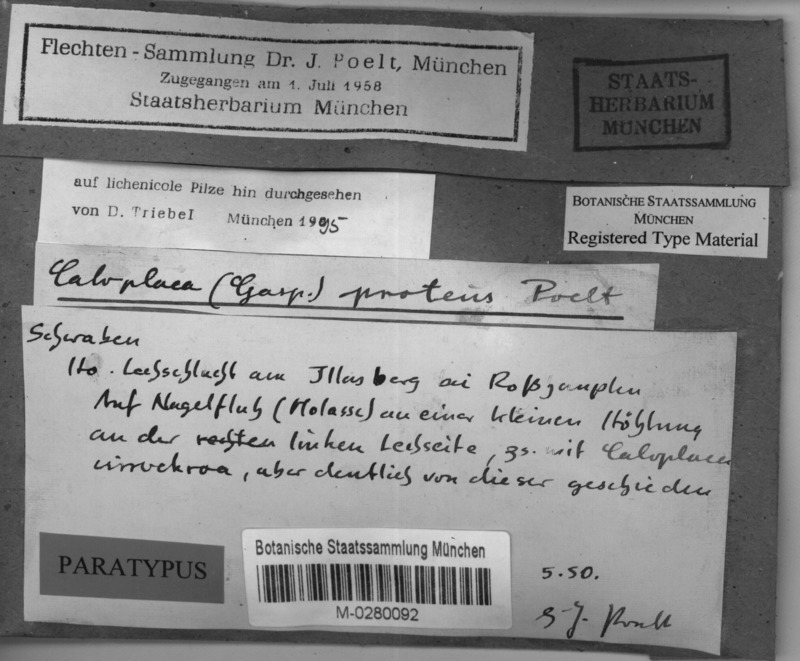 Flechten - Sammlung Dr. J. Poelt, München
Zugegangen am 1. Juli 1958
Staatsherbarium München
STAATS-
HERBARIUM
MÜNCHEN
auf lichenicole Pilze hin durchgesehen
von D. Triebel München 1995
BOTANISCHE STAATSSAMMLUNG
MÜNCHEN
Registered Type Material
Caloplaca (Gasp.) proteus Poelt
Schwaben
Lechschlucht am Illasberg bei Roßhaupten
Auf Nagelfluh (Molasse) an einer kleinen Höhlung
an der rechten linken Lechseite, zs. mit Caloplaca
cirrochroa, aber deutlich von dieser geschieden
PARATYPUS
Botanische Staatssammlung München
M-0280092
5.50.
J. Poelt